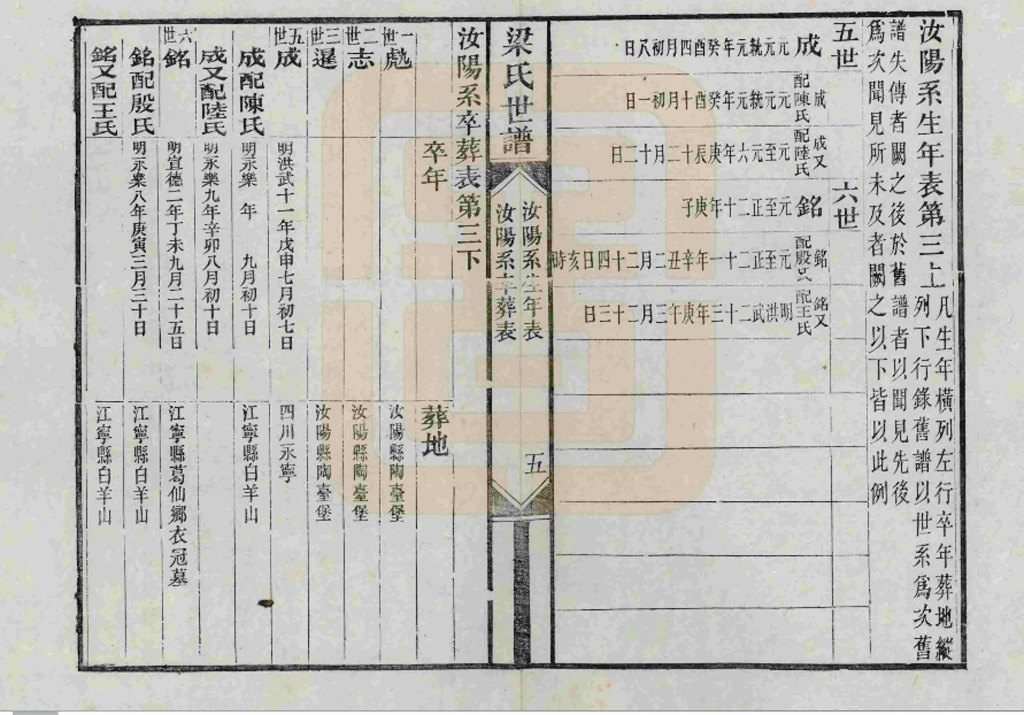 汝陽系生年表第三上
凡生年橫列左行卒年葬地縱
列下行錄舊譜以世系爲次舊
譜失傳者闕之後於舊譜者以聞見先後
爲次聞見所未及者闕之以下皆以此例
五世
成
元元統元年癸酉四月初八日
成配陳氏
元元統元年癸酉十月初一日
成又配陸氏
元至元六年庚辰十二月十二日
六世
銘
元至正二十年庚子
銘配殷氏
元至正二十一年辛丑二月二十四日亥時
銘又配王氏
明洪武二十三年庚午三月二十三日
梁氏世譜
汝陽系生年表
汝陽系卒葬表
五
汝陽系卒葬表第三下
卒年
葬地
一世
彪
汝陽縣陶臺堡
二世
志
汝陽縣陶臺堡
三世
暹
汝陽縣陶臺堡
五世
成
明洪武十一年戊申七月初七日
四川永寧
成配陳氏
明永樂 年 九月初十日
江寧縣白羊山
成又配陸氏
明永樂九年辛卯八月初十日
六世
銘
明宣德二年丁未九月二十五日
江寧縣葛仙鄉衣冠墓
銘配殷氏
明永樂八年庚寅三月三十日
江寧縣白羊山
銘又配王氏
江寧縣白羊山